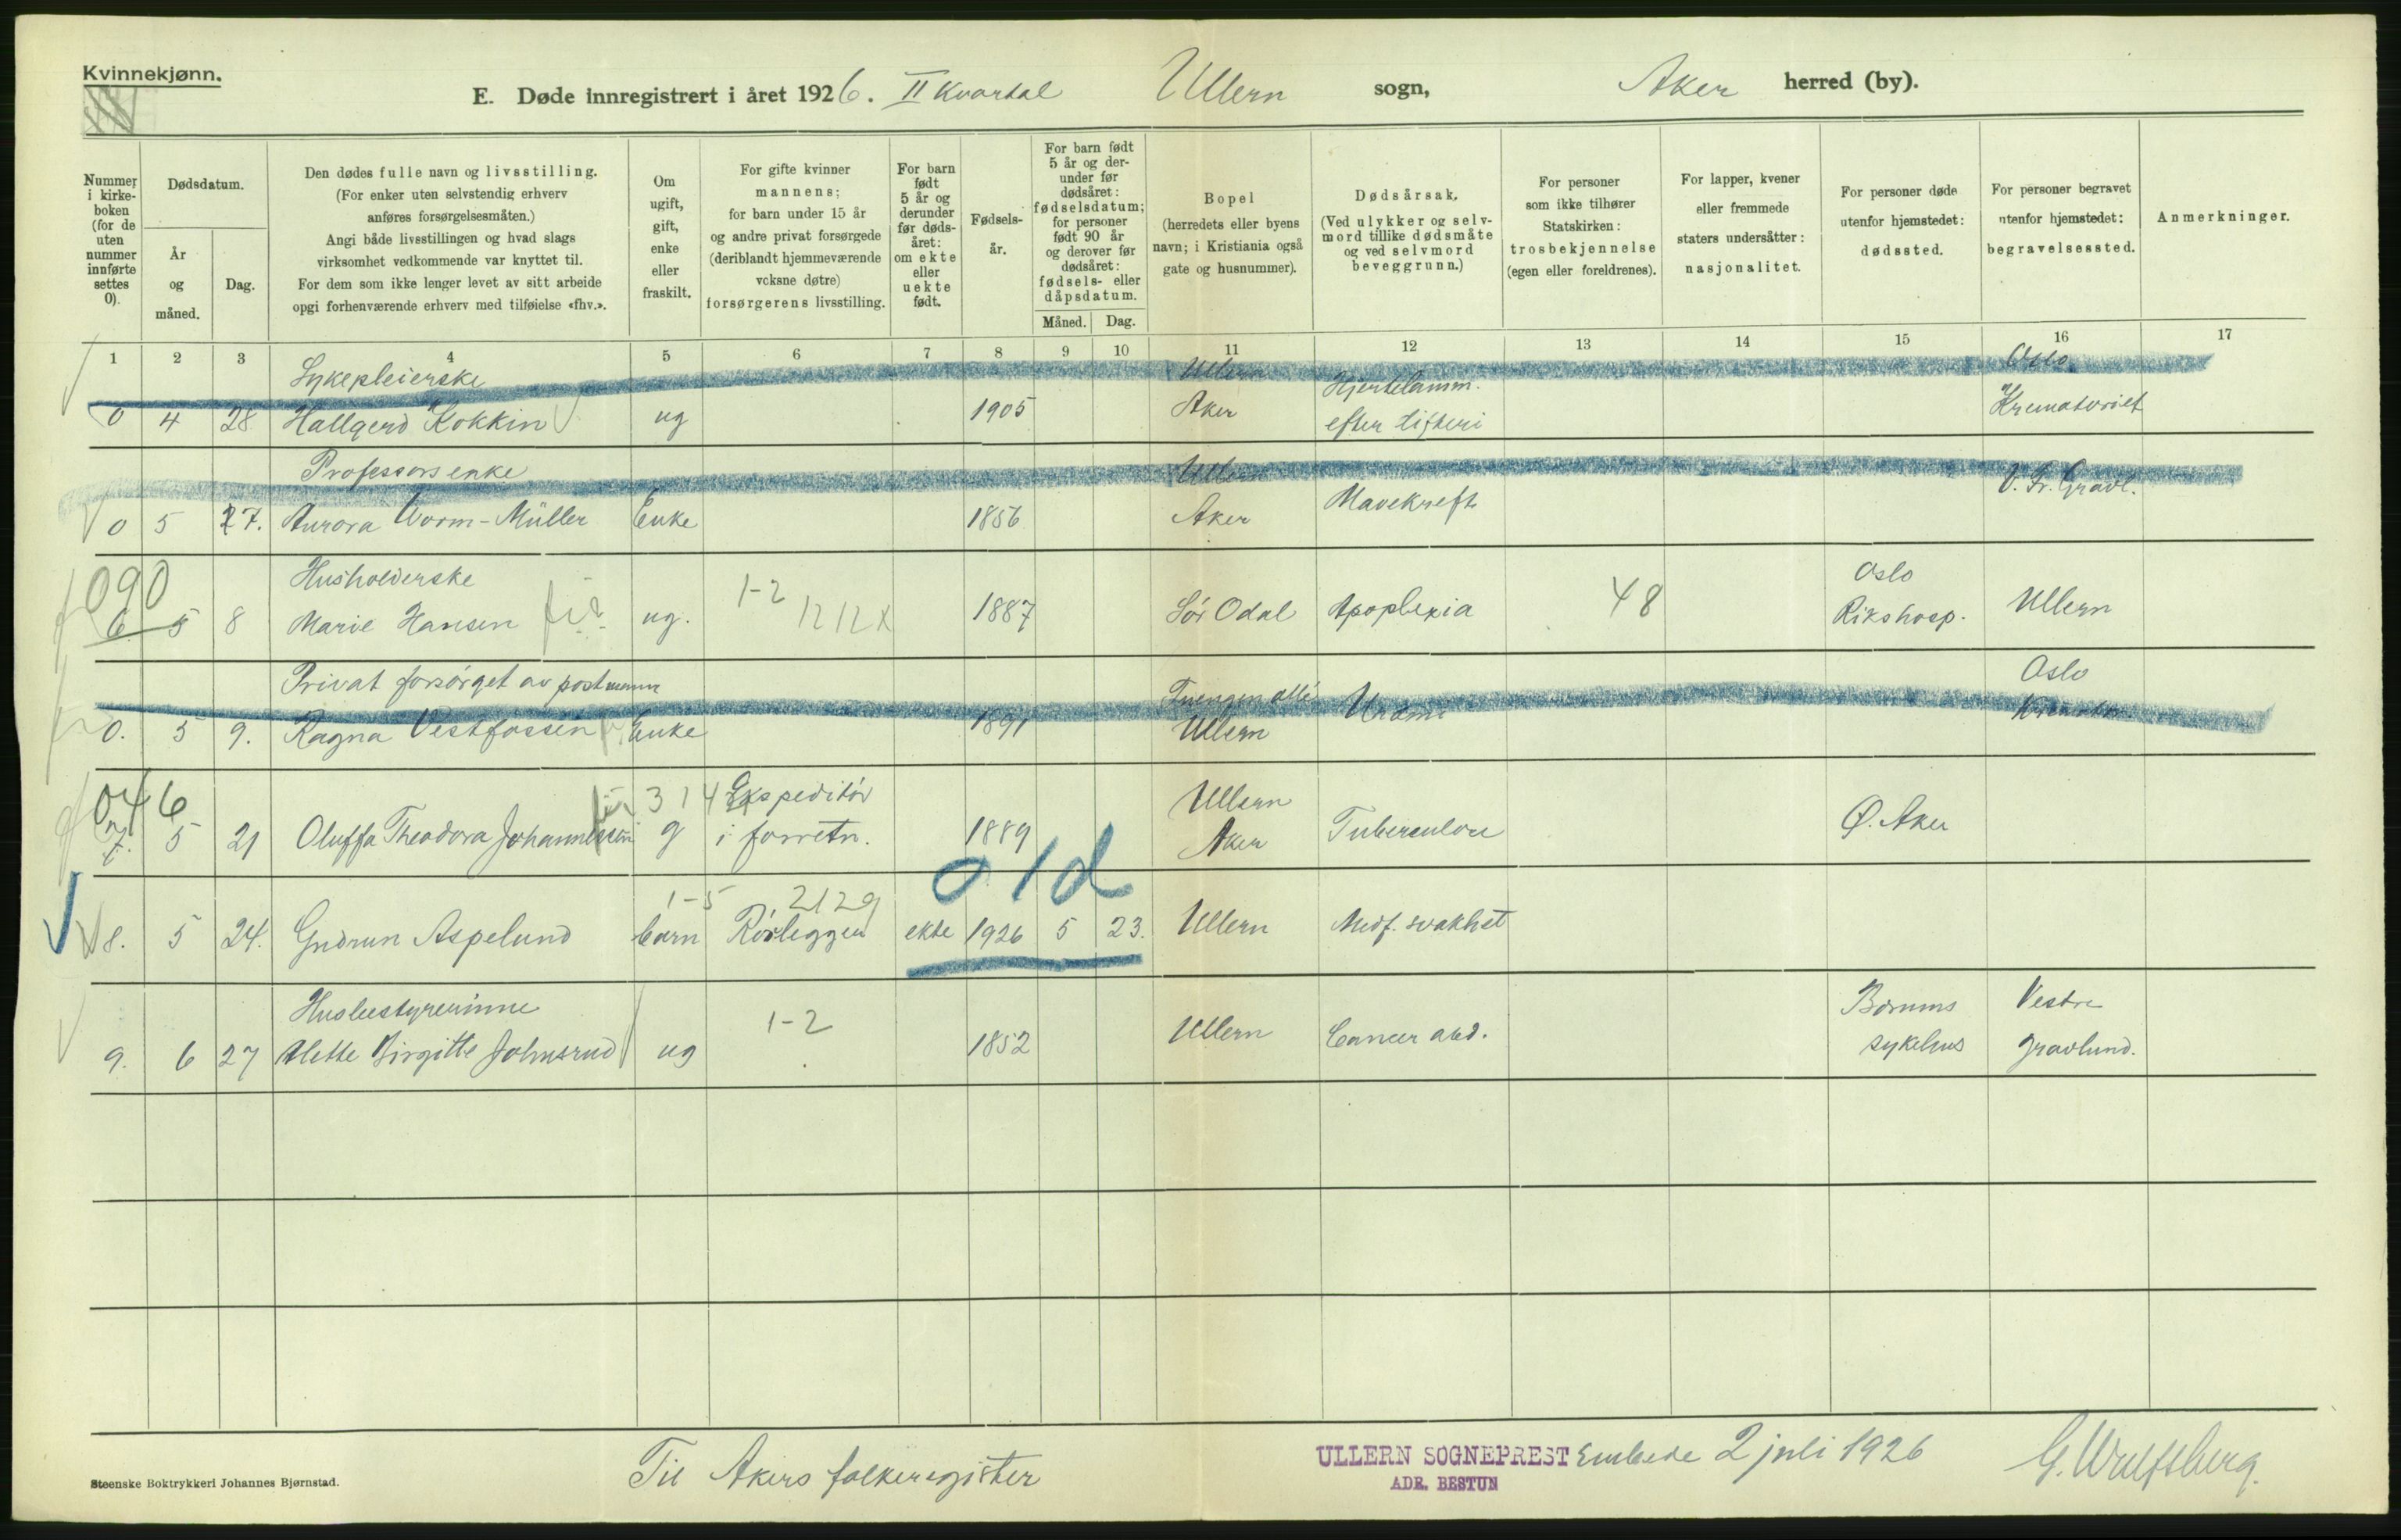 Kvinnekjønn.
E. Døde innregistrert i året 1926. II Kvartal Ullern sogn, Aker herred (by).
Nummer i kirkeboken (for de uten nummer innførte settes 0).
Dødsdatum.
År og måned.
Dag.
Den dødes fulle navn og livsstilling.
(For enker uten selvstendig erhverv
anføres forsørgelsesmåten.)
Angi både livsstillingen og hvad slags
virksomhet vedkommende var knyttet til.
For dem som ikke lenger levet av sitt arbeide
opgi forhenværende erhverv med tilføielse «fhv.».
Om ugift, gift, enke eller fraskilt.
For gifte kvinner
mannens;
for barn under 15 år
og andre privat forsørgede
(deriblandt hjemmeværende
voksne døtre)
forsørgerens livsstilling.
For barn født 5 år og derunder før dødsåret: om ekte eller uekte født.
Fødselsår.
For barn født 5 år og derunder før dødsåret: fødselsdatum; for personer født 90 år og derover før dødsåret: fødsels- eller dåpsdatum.
Måned. Dag.
Bopel
(herredets eller byens
navn; i Kristiania også
gate og husnummer).
Dødsårsak.
(Ved ulykker og selvmord tillike dødsmåte og ved selvmord beveggrunn.)
For personer
som ikke tilhører
Statskirken:
trosbekjennelse
(egen eller foreldrenes).
For lapper, kvener
eller fremmede
staters undersåtter:
nasjonalitet.
For personer døde
utenfor hjemstedet:
dødssted.
For personer begravet
utenfor hjemstedet:
begravelsessted.
Anmerkninger.
1 2 3 4 5 6 7 8 9 10 11 12 13 14 15 16 17
Sykepleierske Ullern Hjertelamm. Oslo
0 4 28 Hallgerd Kokkin ug 1905 Aker efter difteri Krematoriet
Professorsenke Ullern V. Fr. Gravl.
0 5 27. Aurora Worm-Müller Enke 1856 Aker Mavekreft
090 Husholderske 1-2 48 Oslo
6. 5 8 Marie Hansen ug. 1212X 1887 Sør Odal Apoplexia Rikshosp. Ullern
Privat forsørget av postmann Tuengen allé Oslo
0. 5 9. Ragna Vestfossen Enke 1891 Ullern Urämi
046 314 Ekspeditör Ullern
7. 5 21 Oluffa Theodora Johannessen g i forretn. 1889 Aker Tuberculose Ø. Aker
1-5 2129 01d
8. 5 24. Gudrun Aspelund barn Rörlegger ekte 1926 5 23. Ullern Medf. svakhet
Husbestyrerinne 1-2 Bærums Vestre
9. 6 27 Mette Birgitte Johnsrud ug 1852 Ullern Cancer abd. sykehus gravlund.
Steenske Boktrykkeri Johannes Bjørnstad.
Til Akers folkeregister
ULLERN SOGNEPREST Embede 2 juli 1926
ADR. BESTUN
G. Wulfsberg.